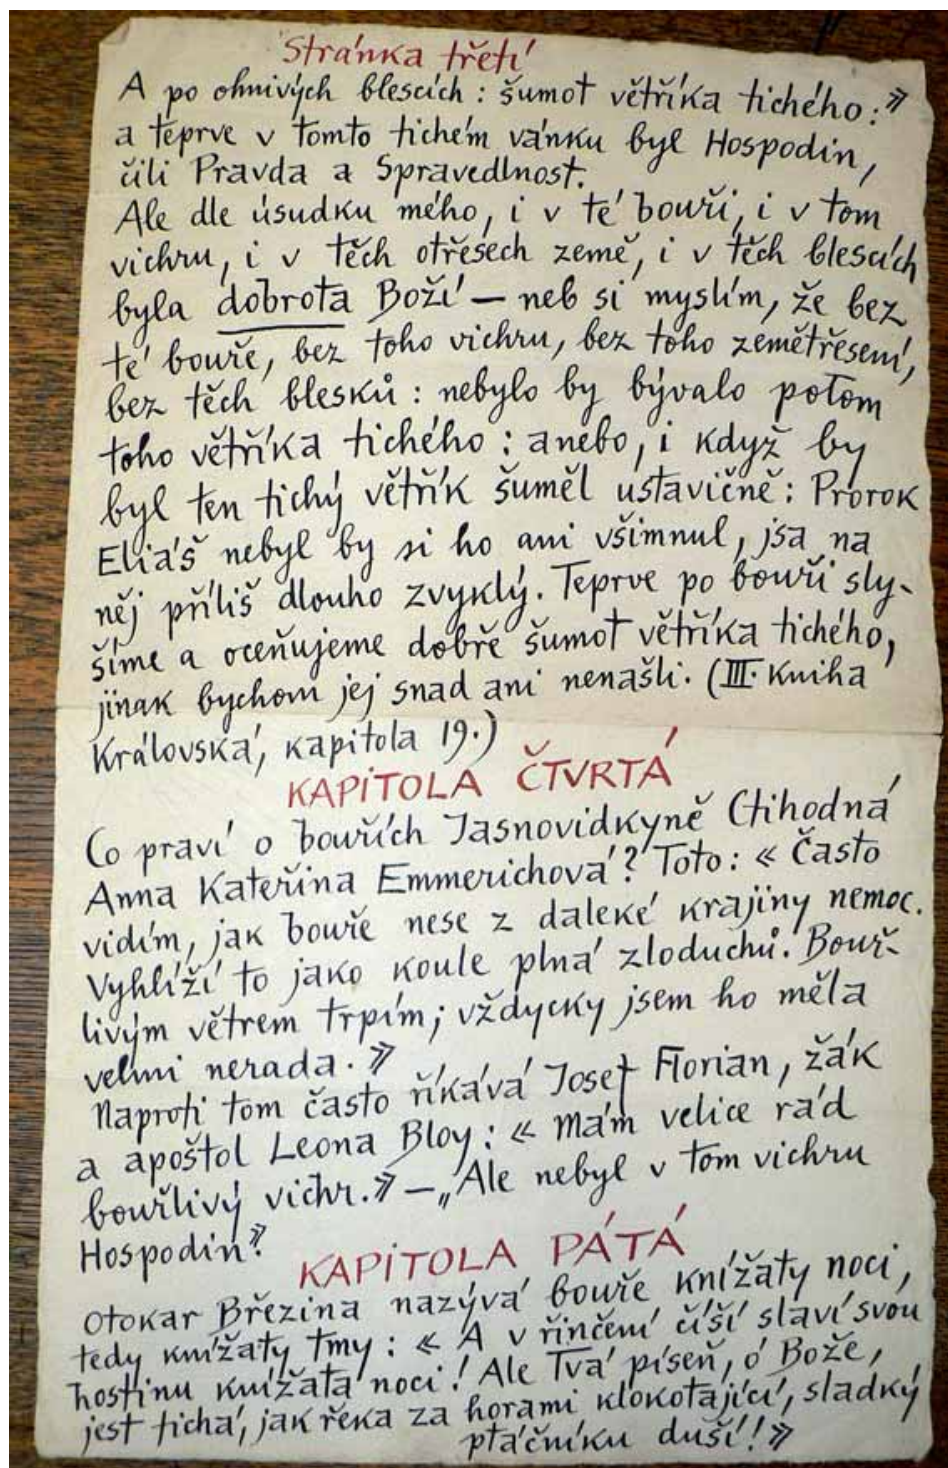 Stránka třetí
A po ohnivých blescích : šumot větříka tichého :»
a teprve v tomto tichém vánku byl Hospodin,
čili Pravda a Spravedlnost.
Ale dle úsudku mého, i v té bouři, i v tom
vichru, i v těch otřesech země, i v těch blescích
byla dobrota Boží — neb si myslím, že bez
té bouře, bez toho vichru, bez toho zemětřesení,
bez těch blesků : nebylo by bývalo potom
toho větříka tichého : anebo, i když by
byl ten tichý větřík šuměl ustavičně : Prorok
Eliáš nebyl by si ho ani všimnul, jsa na
něj příliš dlouho zvyklý. Teprve po bouři sly-
šíme a oceňujeme dobře šumot větříka tichého,
jinak bychom jej snad ani nenašli. (III. Kniha
Královská, kapitola 19.)
KAPITOLA ČTVRTÁ
Co praví o bouřích Jasnovidkyně Ctihodná
Anna Kateřina Emmerichová? Toto : « Často
vidím, jak bouře nese z daleké krajiny nemoc.
Vyhlíží to jako koule plná zloduchů. Bouř-
livým větrem trpím; vždycky jsem ho měla
velmi nerada. »
Naproti tom často říkává Josef Florian, žák
a apoštol Leona Bloy : « Mám velice rád
bouřlivý vichr.» — „Ale nebyl v tom vichru
Hospodin?
KAPITOLA PÁTÁ
Otokar Březina nazývá bouře knížaty noci,
tedy knížaty tmy : « A v řinčení číší slaví svou
hostinu knížata noci! Ale Tvá píseň, ó Bože,
jest tichá, jak řeka za horami klokotající, sladký
ptáčníku duší!»